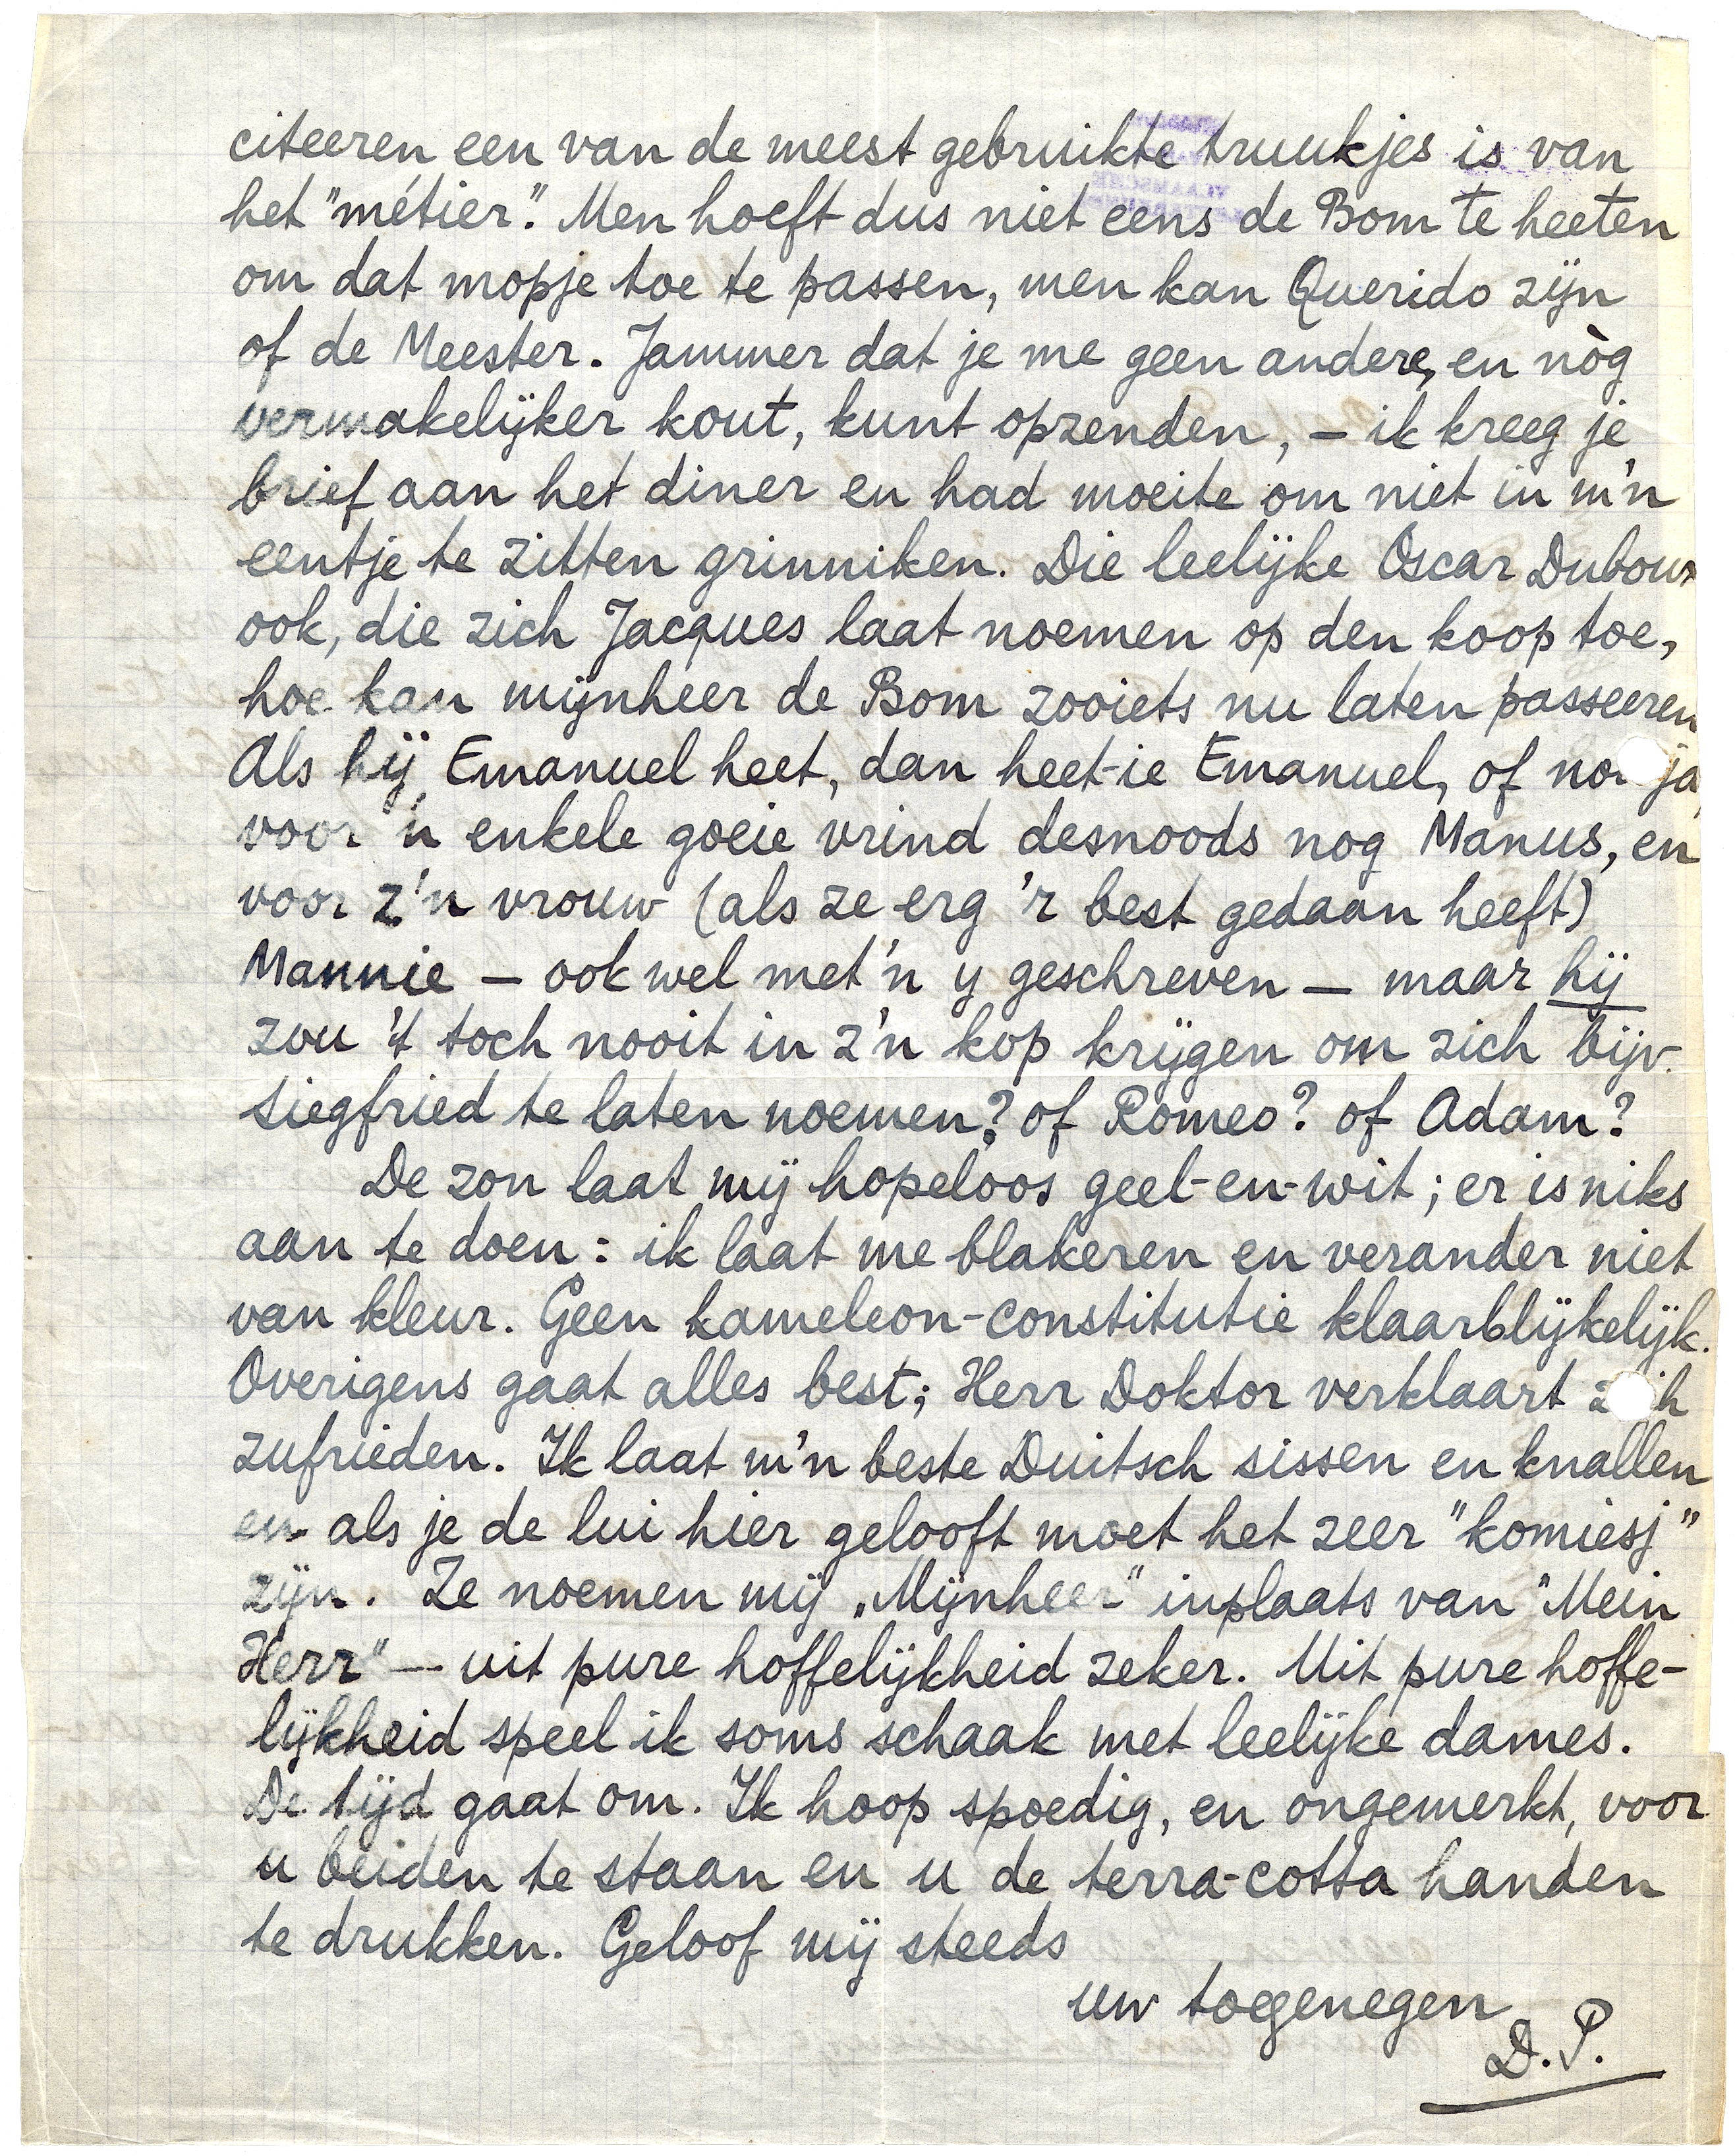 citeeren een van de meest gebruikte truukjes is van
het "métier". Men hoeft dus niet eens de Bom te heeten
om dat mopje toe te passen, men kan Querido zijn
of de Meester. Jammer dat je me geen andere, en nòg
vermakelijker kout, kunt opzenden, – ik kreeg je
brief aan het diner en had moeite om niet in m'n
eentje te zitten grinniken. Die leelijke Oscar
ook, die zich Jacques laat noemen op den koop toe,
hoe kan mijnheer de Bom zooiets nu laten passeeren
Als hij Emanuel heet, dan heet-ie Emanuel, of ja
voor 'n enkele goeie vrind desnoods nog Manus, en
voor z'n vrouw (als ze erg 'r best gedaan heeft)
Mannie – ook wel met 'n y geschreven – maar hij
zou 't toch nooit in z'n kop krijgen om zich bijv.
Siegfried te laten noemen? of Romeo? of Adam?
De zon laat mij hopeloos geel-en-wit; er is niks
aan te doen: ik laat me blakeren en verander niet
van kleur. Geen kameleon-constitutie klaarblijkelijk.
Overigens gaat alles best; Herr Doktor verklaart zich
zufrieden. Ik laat m'n beste Duitsch sissen en knallen
en als je de lui hier gelooft moet het zeer "komiesj"
zijn. Ze noemen mij „Mijnheer" inplaats van "Mein
Herr" – uit pure hoffelijkheid zeker. Uit pure hoffe-
lijkheid speel ik soms schaak met leelijke dames.
De tijd gaat om. Ik hoop spoedig, en ongemerkt, voor
u beiden te staan en u de terra-cotta handen
te drukken. Geloof mij steeds
uw toegenegen
D.P.